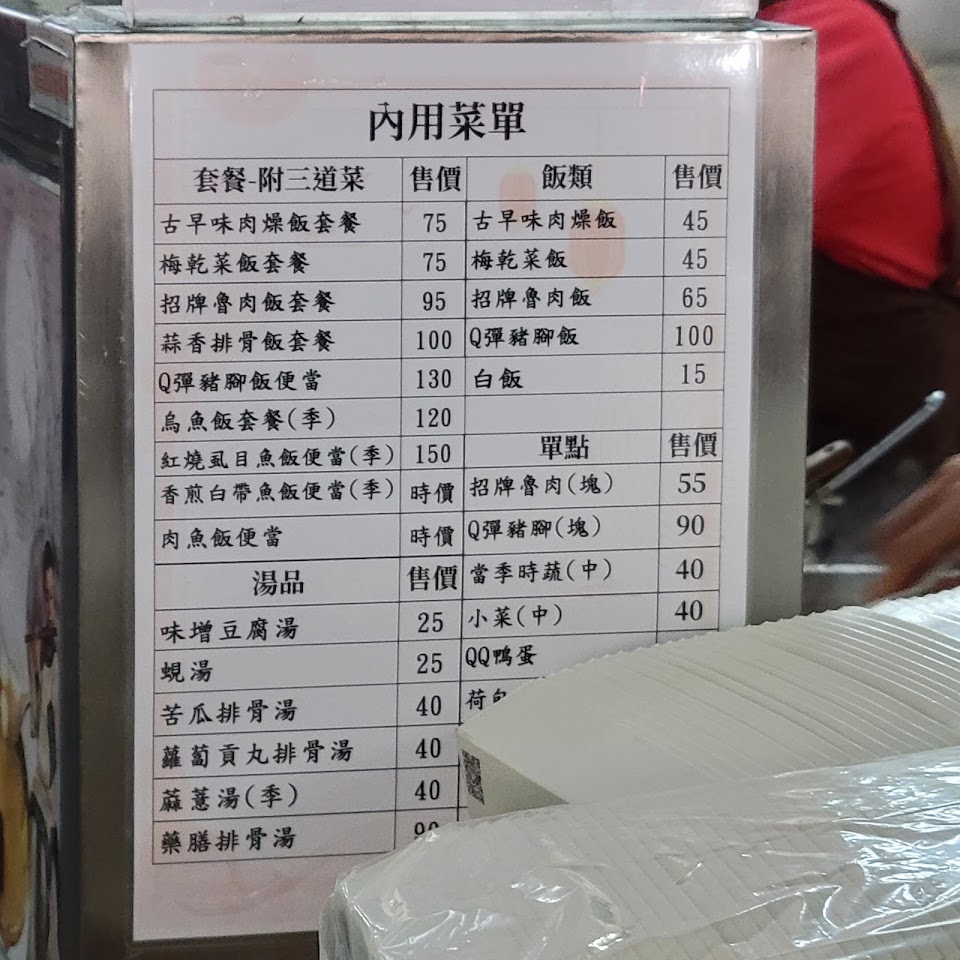 內用菜單
套餐-附三道菜 售價
古早味肉燥飯套餐 75
梅乾菜飯套餐 75
招牌魯肉飯套餐 95
蒜香排骨飯套餐 100
Q彈豬腳飯便當 130
烏魚飯套餐(季) 120
紅燒虱目魚飯便當(季) 150
香煎白帶魚飯便當(季) 時價
肉魚飯便當 時價
湯品 售價
味增豆腐湯 25
蜆湯 25
苦瓜排骨湯 40
蘿蔔貢丸排骨湯 40
蒜薏湯(季) 40
藥膳排骨湯 90
飯類 售價
古早味肉燥飯 45
梅乾菜飯 45
招牌魯肉飯 65
Q彈豬腳飯 100
白飯 15
單點 售價
招牌魯肉(塊) 55
Q彈豬腳(塊) 90
當季時蔬(中) 40
小菜(中) 40
QQ鴨蛋
荷包